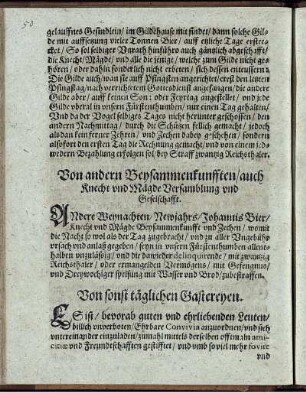 gelauffnes Gesindlein/ im Gildehause mit findet/ dann solche Gilde
mit auffsetzung vieler Tonnen Bier/ auff etzliche Tage erstrecket/
So sol selbiger Vnrath hinführo auch gäntzlich abgeschafft/
die Knecht/ Mägde/ vnd alle die jenige/ welche zum Gilde nicht gehören/
oder dahin sonderlich nicht erbeten/ sich dessen
Die Gilde auch wan sie auff Pfingsten angerichtet/ erst den
Pfingstag/ nach verrichtetem Gottesdienst angefangen/ die andere
Gilde aber/ auff keinen Son- oder Feyrtag angestellet/ vnd jede
Gilde vberal in vnsern Fürstenthumben/ nur einen Tag gehalten/
Vnd da der Vogel selbiges Tages nicht herunter geschossen/ den
andern Nachmittag/ durch die Schützen fellich gemacht/ jedoch
als dan kein ferner Zehren/ vnd Zechen dabey geschehen/ sondern
alsofort den ersten Tag die Rechnung gemacht/ vnd von einem jedowedern
Bezahlung erfolgen sol/ bey Straff zwantzig Reichsthaler.
Von andern Beysammenkunfften/ auch
Knecht vnd Mägde Versamblung vnd
Gesellschafft.
ANdere Weynachten/ Newjahrs/ Johannis Bier/
Knecht vnd Mägde Beysammenkunffte vnd Zechen/ womit
die Nacht so wol als der Tag zugebracht/ vnd zu aller Vngebühr
vrsach vnd anlaß gegeben/ seyn in vnsern Fürstenthumben allenthalben
vnzulässig/ vnd die darwieder delinquirende/ mit zwantzig
Reichsthaler/ oder ermangelnden Vermögens/ mit Gefengnus/
vnd Dreywochiger speisung mit Wasser vnd Brod/ zubestraffen.
Von sonst täglichen Gastereyen.
ES ist/ bevorab guten vnd ehrliebenden Leuten/
billich vnverboten/ Ehrbare Convivia anzuordnen/ vnd sich
vntereinander einzuladen/ zumahl mittels derselben offtmahln amicitiæ
vnd Freundtschafften gestifftet/ vnd vmb so viel mehr
vnd